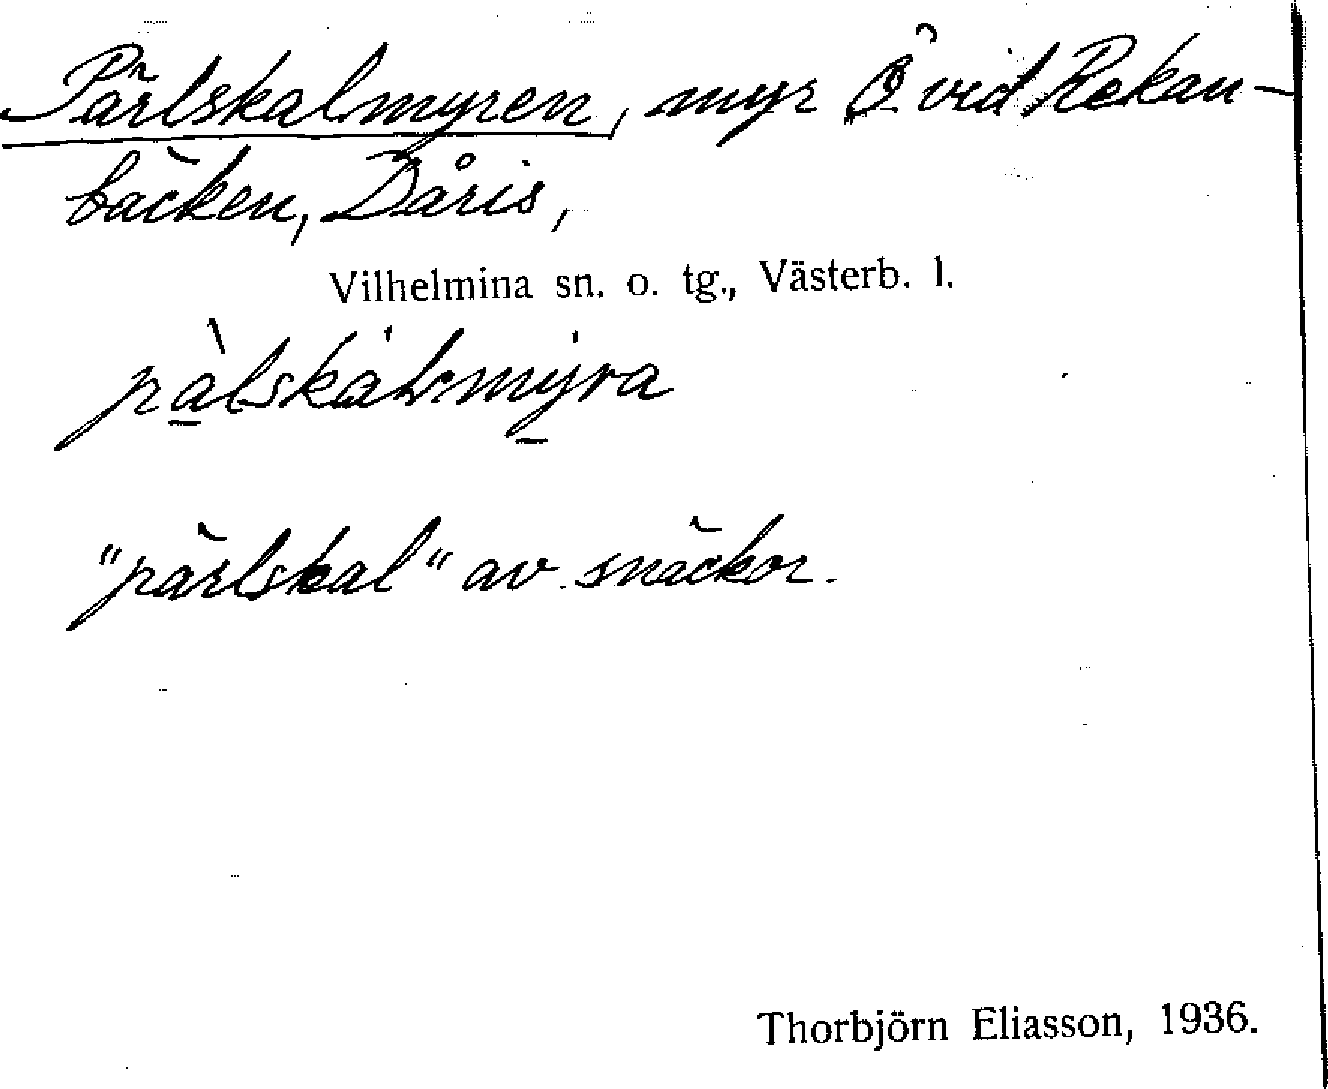 Pärlskalmyren, myr Ö vid Rekan-
bäcken, Dåris,
Vilhelmina sn. o. tg., Västerb. l.
"pärlskal" av snäckor.
Thorbjörn Eliasson, 1936.